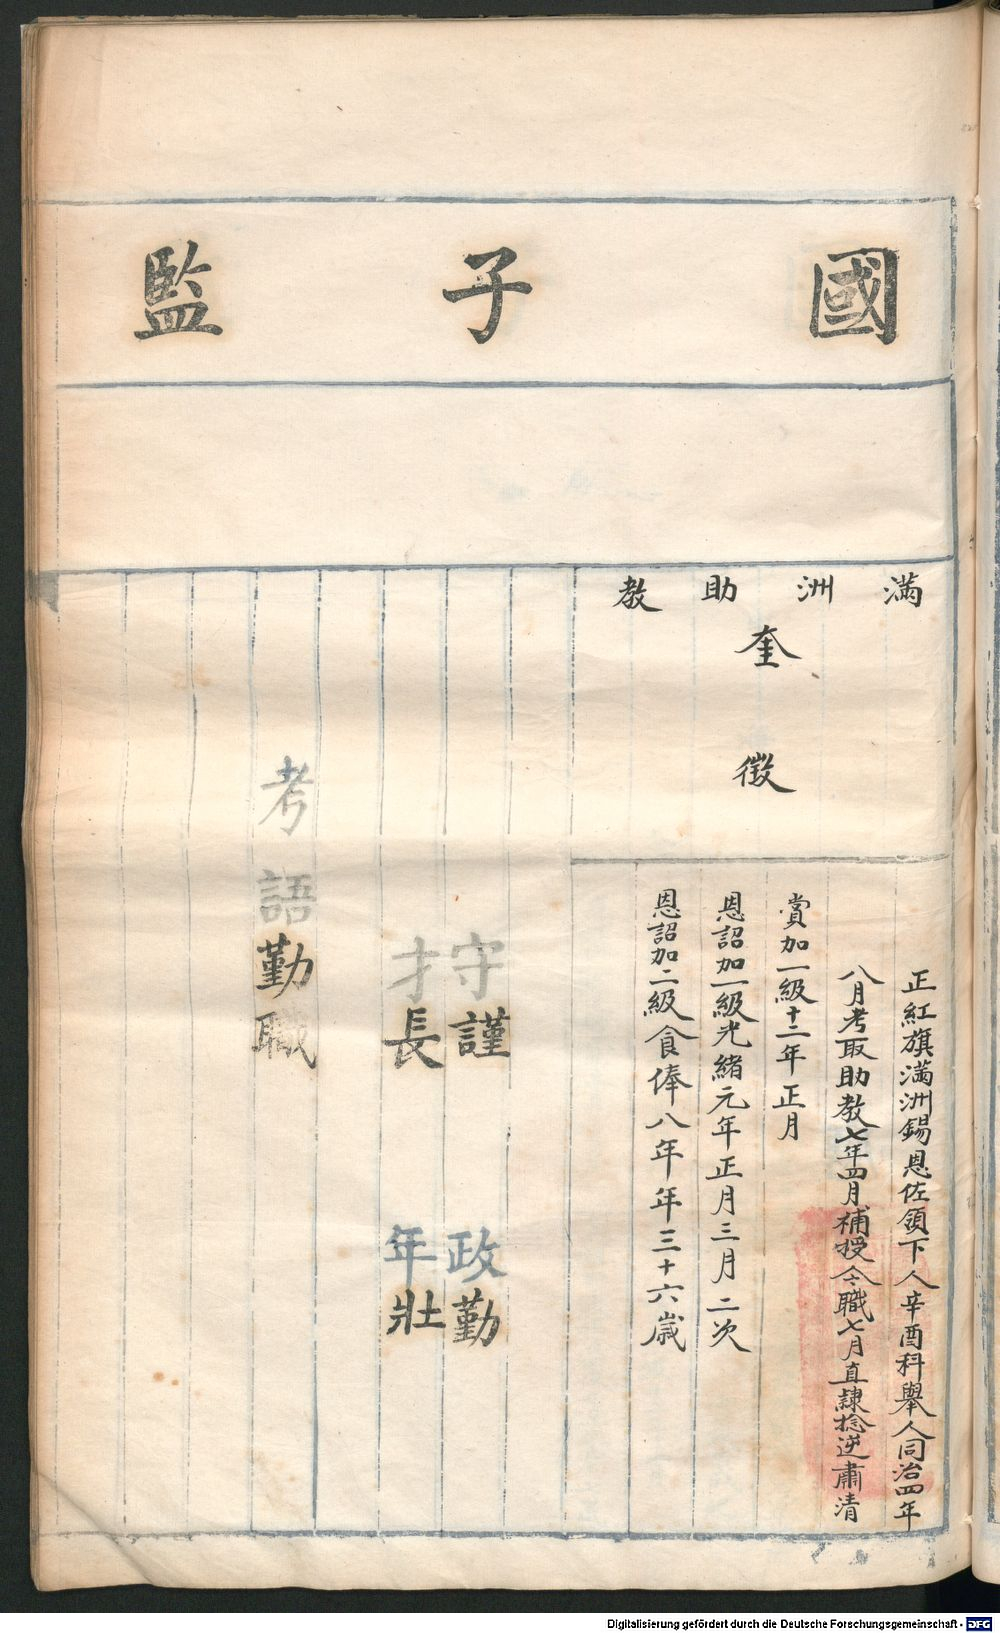 國子監
滿洲助教
奎徵
正紅旗滿洲錫恩佐領下人辛酉科舉人同治四年
八月考取助教七年四月補授今職七月直隷捻逆肅清
賞加一級十二年正月
恩詔加一級光緒元年正月三月二次
恩詔加二級食俸八年年三十六歲
守謹 政勤
才長 年壯
考語勤職
Digitalisierung gefördert durch die Deutsche Forschungsgemeinschaft - DFG